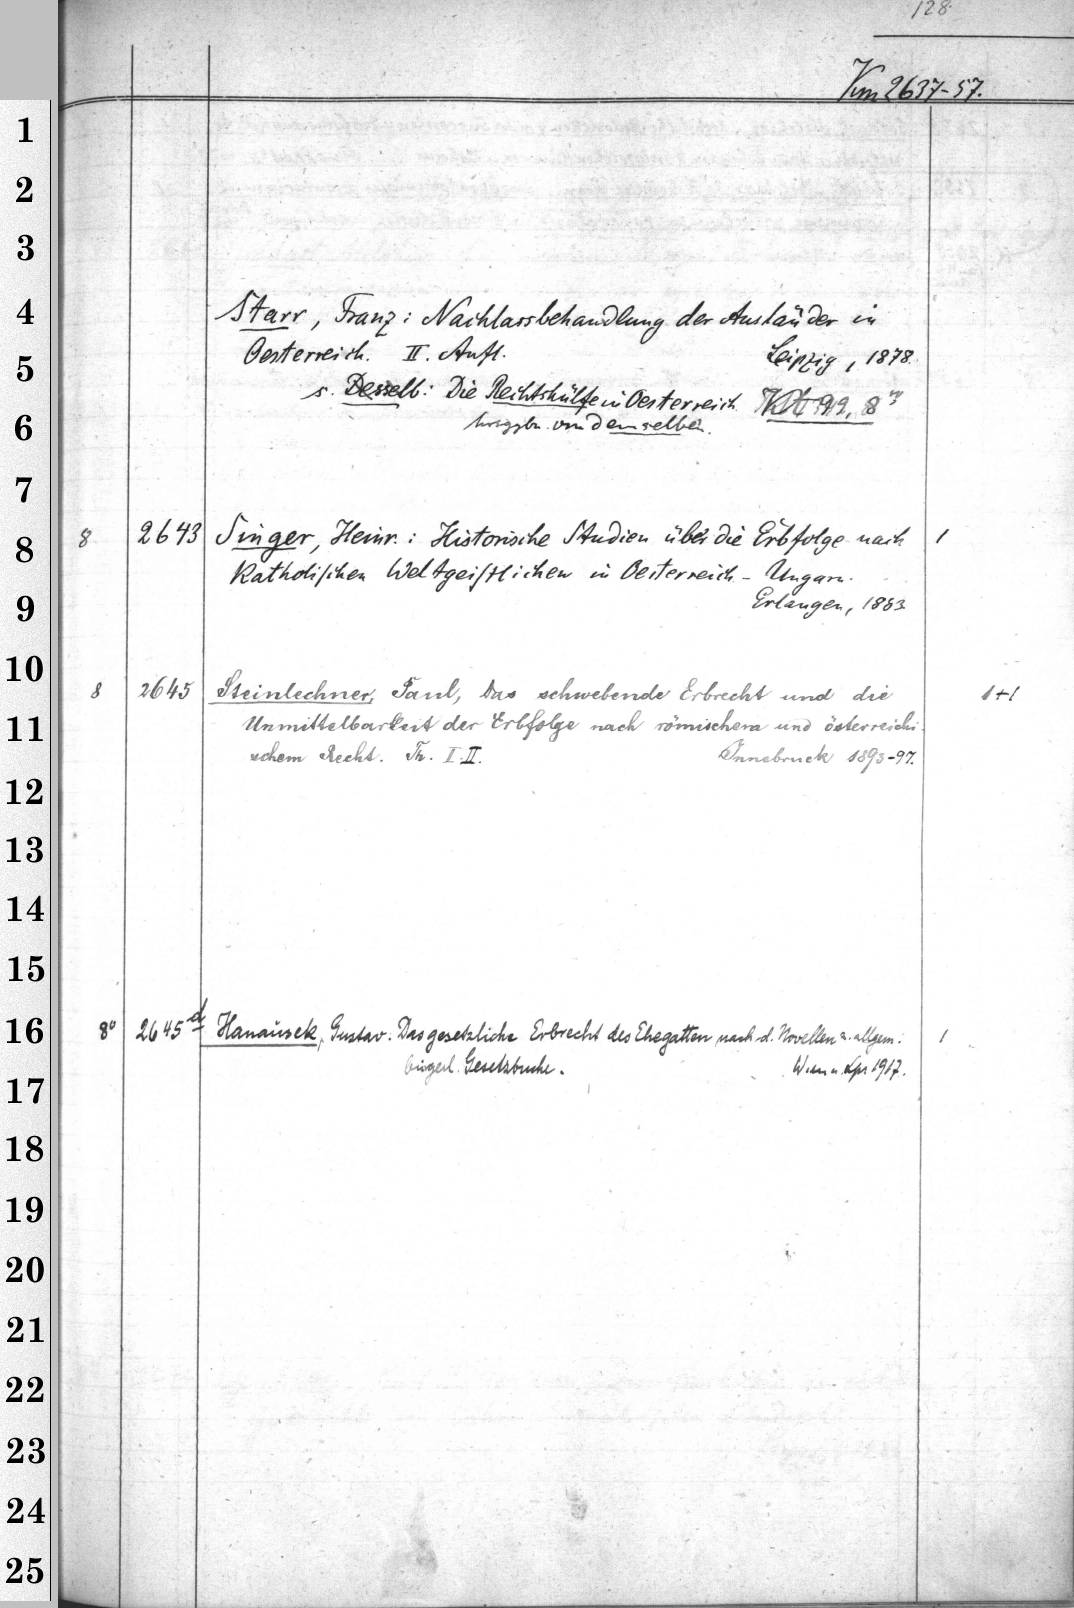 128
Vm 2637-57.
1
2
3
4
Starr, Franz: Nachlassbehandlung der Ausländer in
5
Oesterreich. II. Aufl. Leipzig, 1878.
s. Desselb: Die Rechtshülfe in Oesterreich.
6
von demselben.
7
8
8 2643 Singer, Heinr.: Historische Studien über die Erbfolge nach 1
katholischen Weltgeistlichen in Oesterreich-Ungarn.
9
Erlangen, 1883
10
8 2645 Steinlechner, Paul, Das schwebende Erbrecht und die 1+1
11
Unmittelbarkeit der Erbfolge nach römischem und österreichi-
schem Recht. Th. I.II. Innsbruck 1893-97.
12
13
14
15
16
8° 2645 d Hanausek, Gustav: Das gesetzliche Erbrecht des Ehegatten nach d. Novellen z. allgem. 1
bürgerl. Gesetzbuche. Wien u. Lpz 1917.
17
18
19
20
21
22
23
24
25